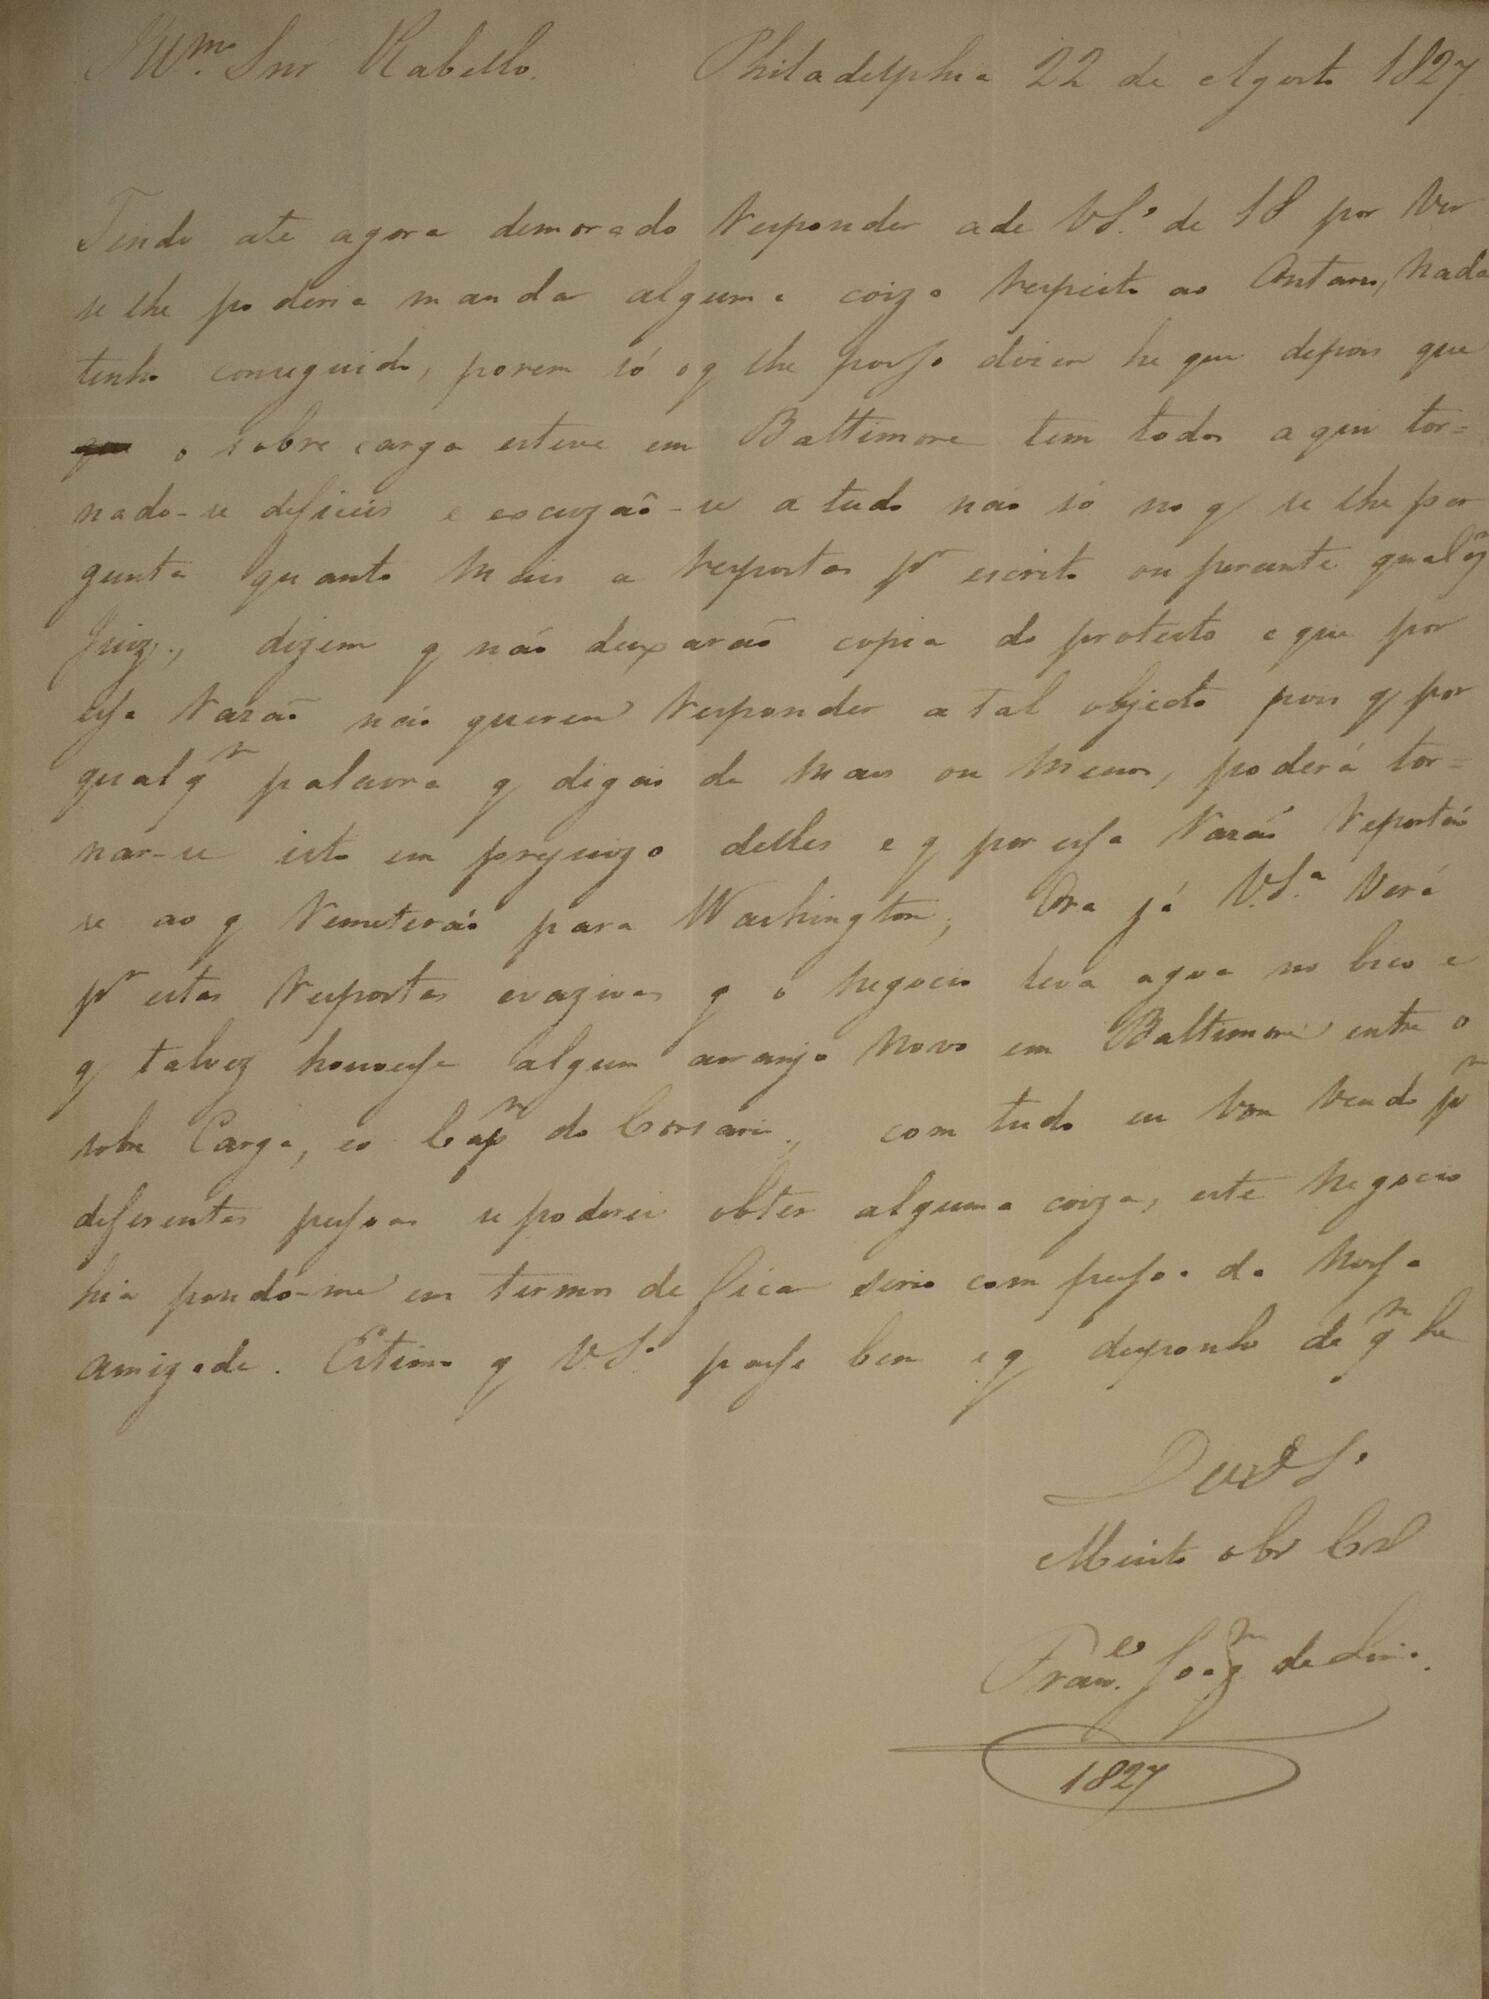 Illmo. Snr Rabello. Philadelphia 22 de Agosto 1827
Tendo ate agora demorado responder a de VSa. de 18 por ver
se lhe poderia mandar alguma coiza respeito ao Antares, nada
tenho conseguido, porem só o q lhe posso dizer he que depois que
o sobre carga esteve em Baltimore tem todos aqui tor=
nado-se deficeis e escuzaõ-se a tudo não só no q se lhe per
gunta quanto mais a respostas pr escrito ou perante qualqr
Juiz., dizem q não deixaraõ copia do protesto e que por
essa razaõ não querem responder a tal objecto pois q por
qualqr palavra q digaõ de mais ou menos, poderá tor=
nar-se isto em prejuizo delles e q por essa razaõ reportaõ
se ao q remeteraõ para Washington, Ora já V.Sa. verá
pr estas respostas evazivas q o negocio leva agoa no bico e
q talvez houvesse algum arranjo novo em Baltimore entre o
sobre Carga, e o Capm do Corsario., com tudo eu vou vendo pr
diferentes pessoas se poderei obter alguma coiza, este negocio
hia pondo-me em termos de ficar serio com pessoa da nossa
amizade. Estimo q VSa. passe bem e q desponha de qm he
De VSa.
Muito obr Cro
Franco. Joaqm de Lima.
1827